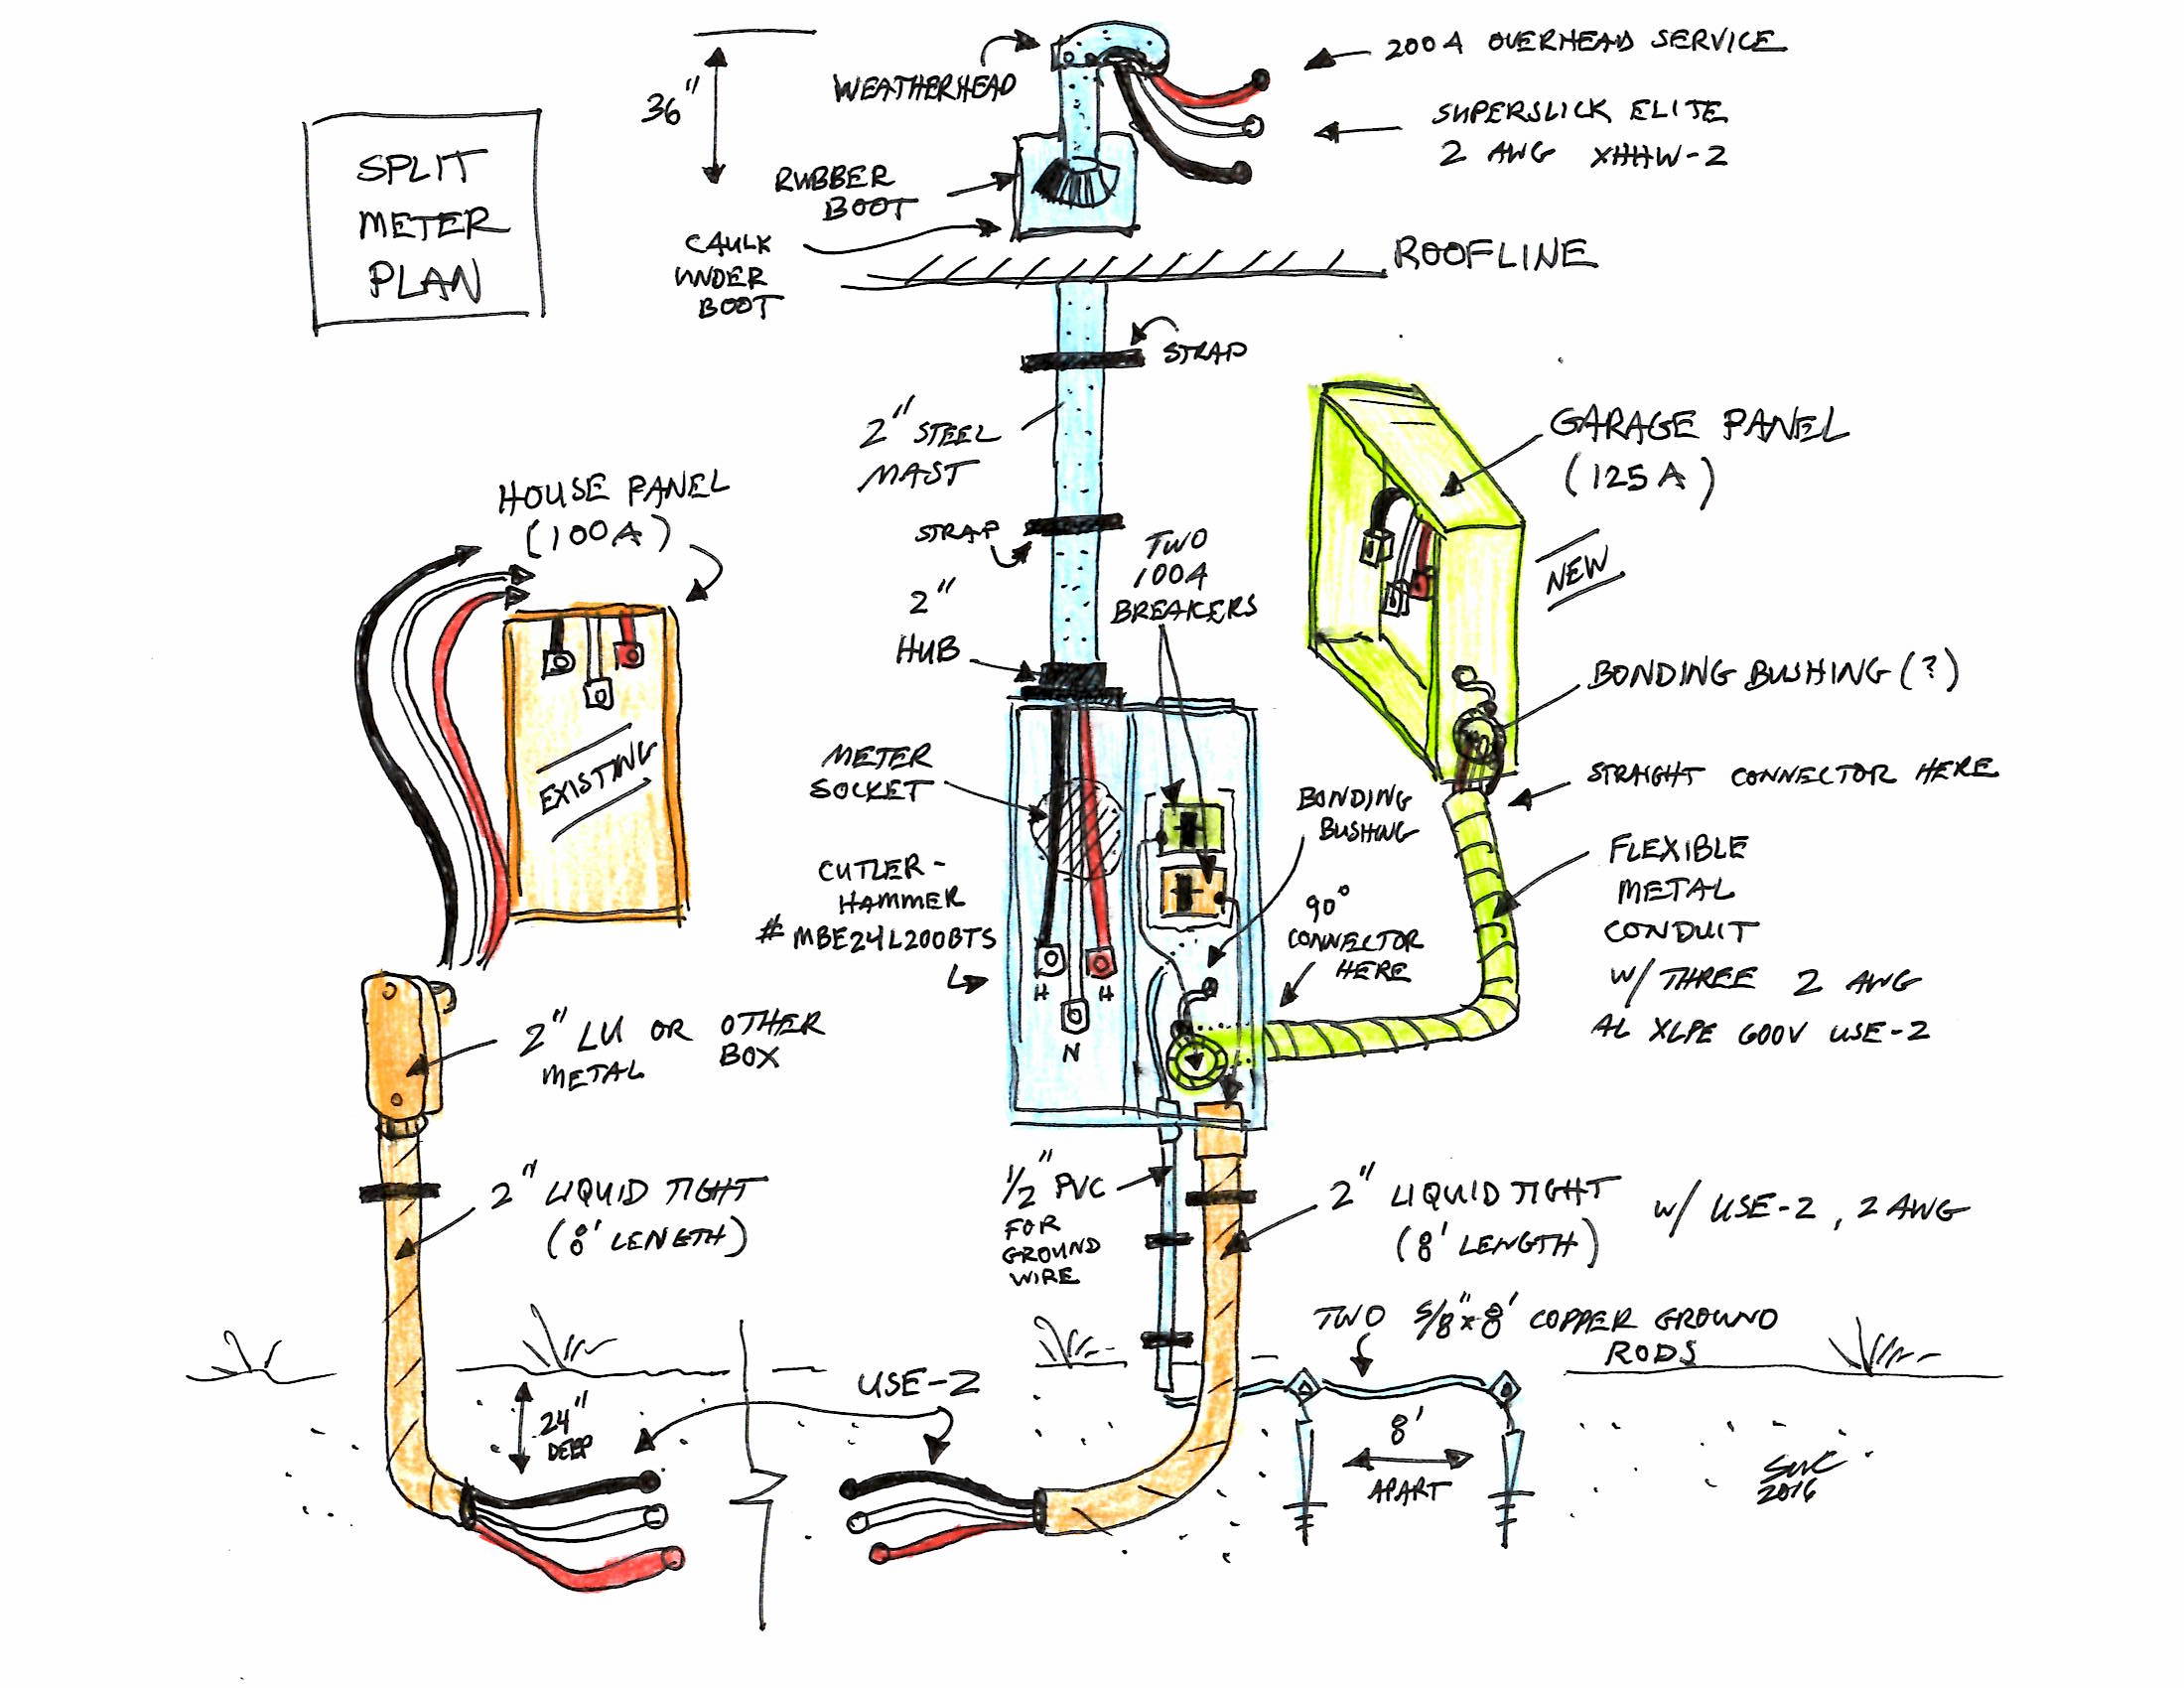 SPLIT
METER
PLAN
36"
WEATHERHEAD
200A OVERHEAD SERVICE
SUPERSLICK ELITE
2 AWG XHHW-2
RUBBER
BOOT
CAULK
UNDER
BOOT
ROOFLINE
STRAP
2" STEEL
MAST
STRAP
2"
HUB
TWO
100A
BREAKERS
GARAGE PANEL
(125A)
NEW
HOUSE PANEL
(100A)
EXISTING
BONDING BUSHING (?)
STRAIGHT CONNECTOR HERE
METER
SOCKET
CUTLER-
HAMMER
# MBE24L200BTS
H
H
N
BONDING
BUSHING
90°
CONNECTOR
HERE
FLEXIBLE
METAL
CONDUIT
W/ THREE 2 AWG
AL XLPE 600V USE-2
2" LU OR OTHER
METAL BOX
2" LIQUID TIGHT
(8' LENGTH)
1/2" PVC
FOR
GROUND
WIRE
2" LIQUID TIGHT W/ USE-2, 2 AWG
(8' LENGTH)
TWO 5/8" x 8' COPPER GROUND
RODS
USE-2
24"
DEEP
8'
APART
SWC
2016